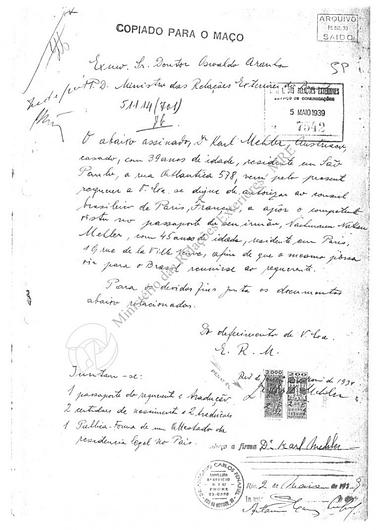 COPIADO PARA O MAÇO
ARQUIVO
SAIDO
Exmo. Sr. Doutor Oswaldo Aranha
SP
D. Ministro das Relações Exteriores
RELAÇÕES EXTERIORES
SERVIÇO DE COMUNICAÇÕES
5 MAIO 1939
7542
511.14 (701)
O abaixo assinado, Dr. Karl Mehler, austriaco,
casado, com 39 anos de idade, residente em São
Paulo, a rua Atlantica 578, vem pelo presente
requerer a V. Exa. se digne de autorizar ao consul
brasileiro de Paris, França, a apôr o competente
visto no passaporte de seu irmão, Nachmann Nathan
Mehler, com 45 anos de idade, residente em Paris,
19 rue de la Ville, afim de que o mesmo possa
vir para o Brasil reunir-se ao requerente.
Para os devidos fins junta os documentos
abaixo relacionados.
Do deferimento de V. Exa.
E. R. M.
Juntam-se:
1 passaporte do requerente e tradução
2 certidões de nascimento e 2 traducões
1 Publica-Forma de um attestado de
residencia legal no Pais.
2000
200
Mehler
a firma Dr. Karl Mehler
Rio, 2 de Maio de 193
Ministério das Relações Exteriores